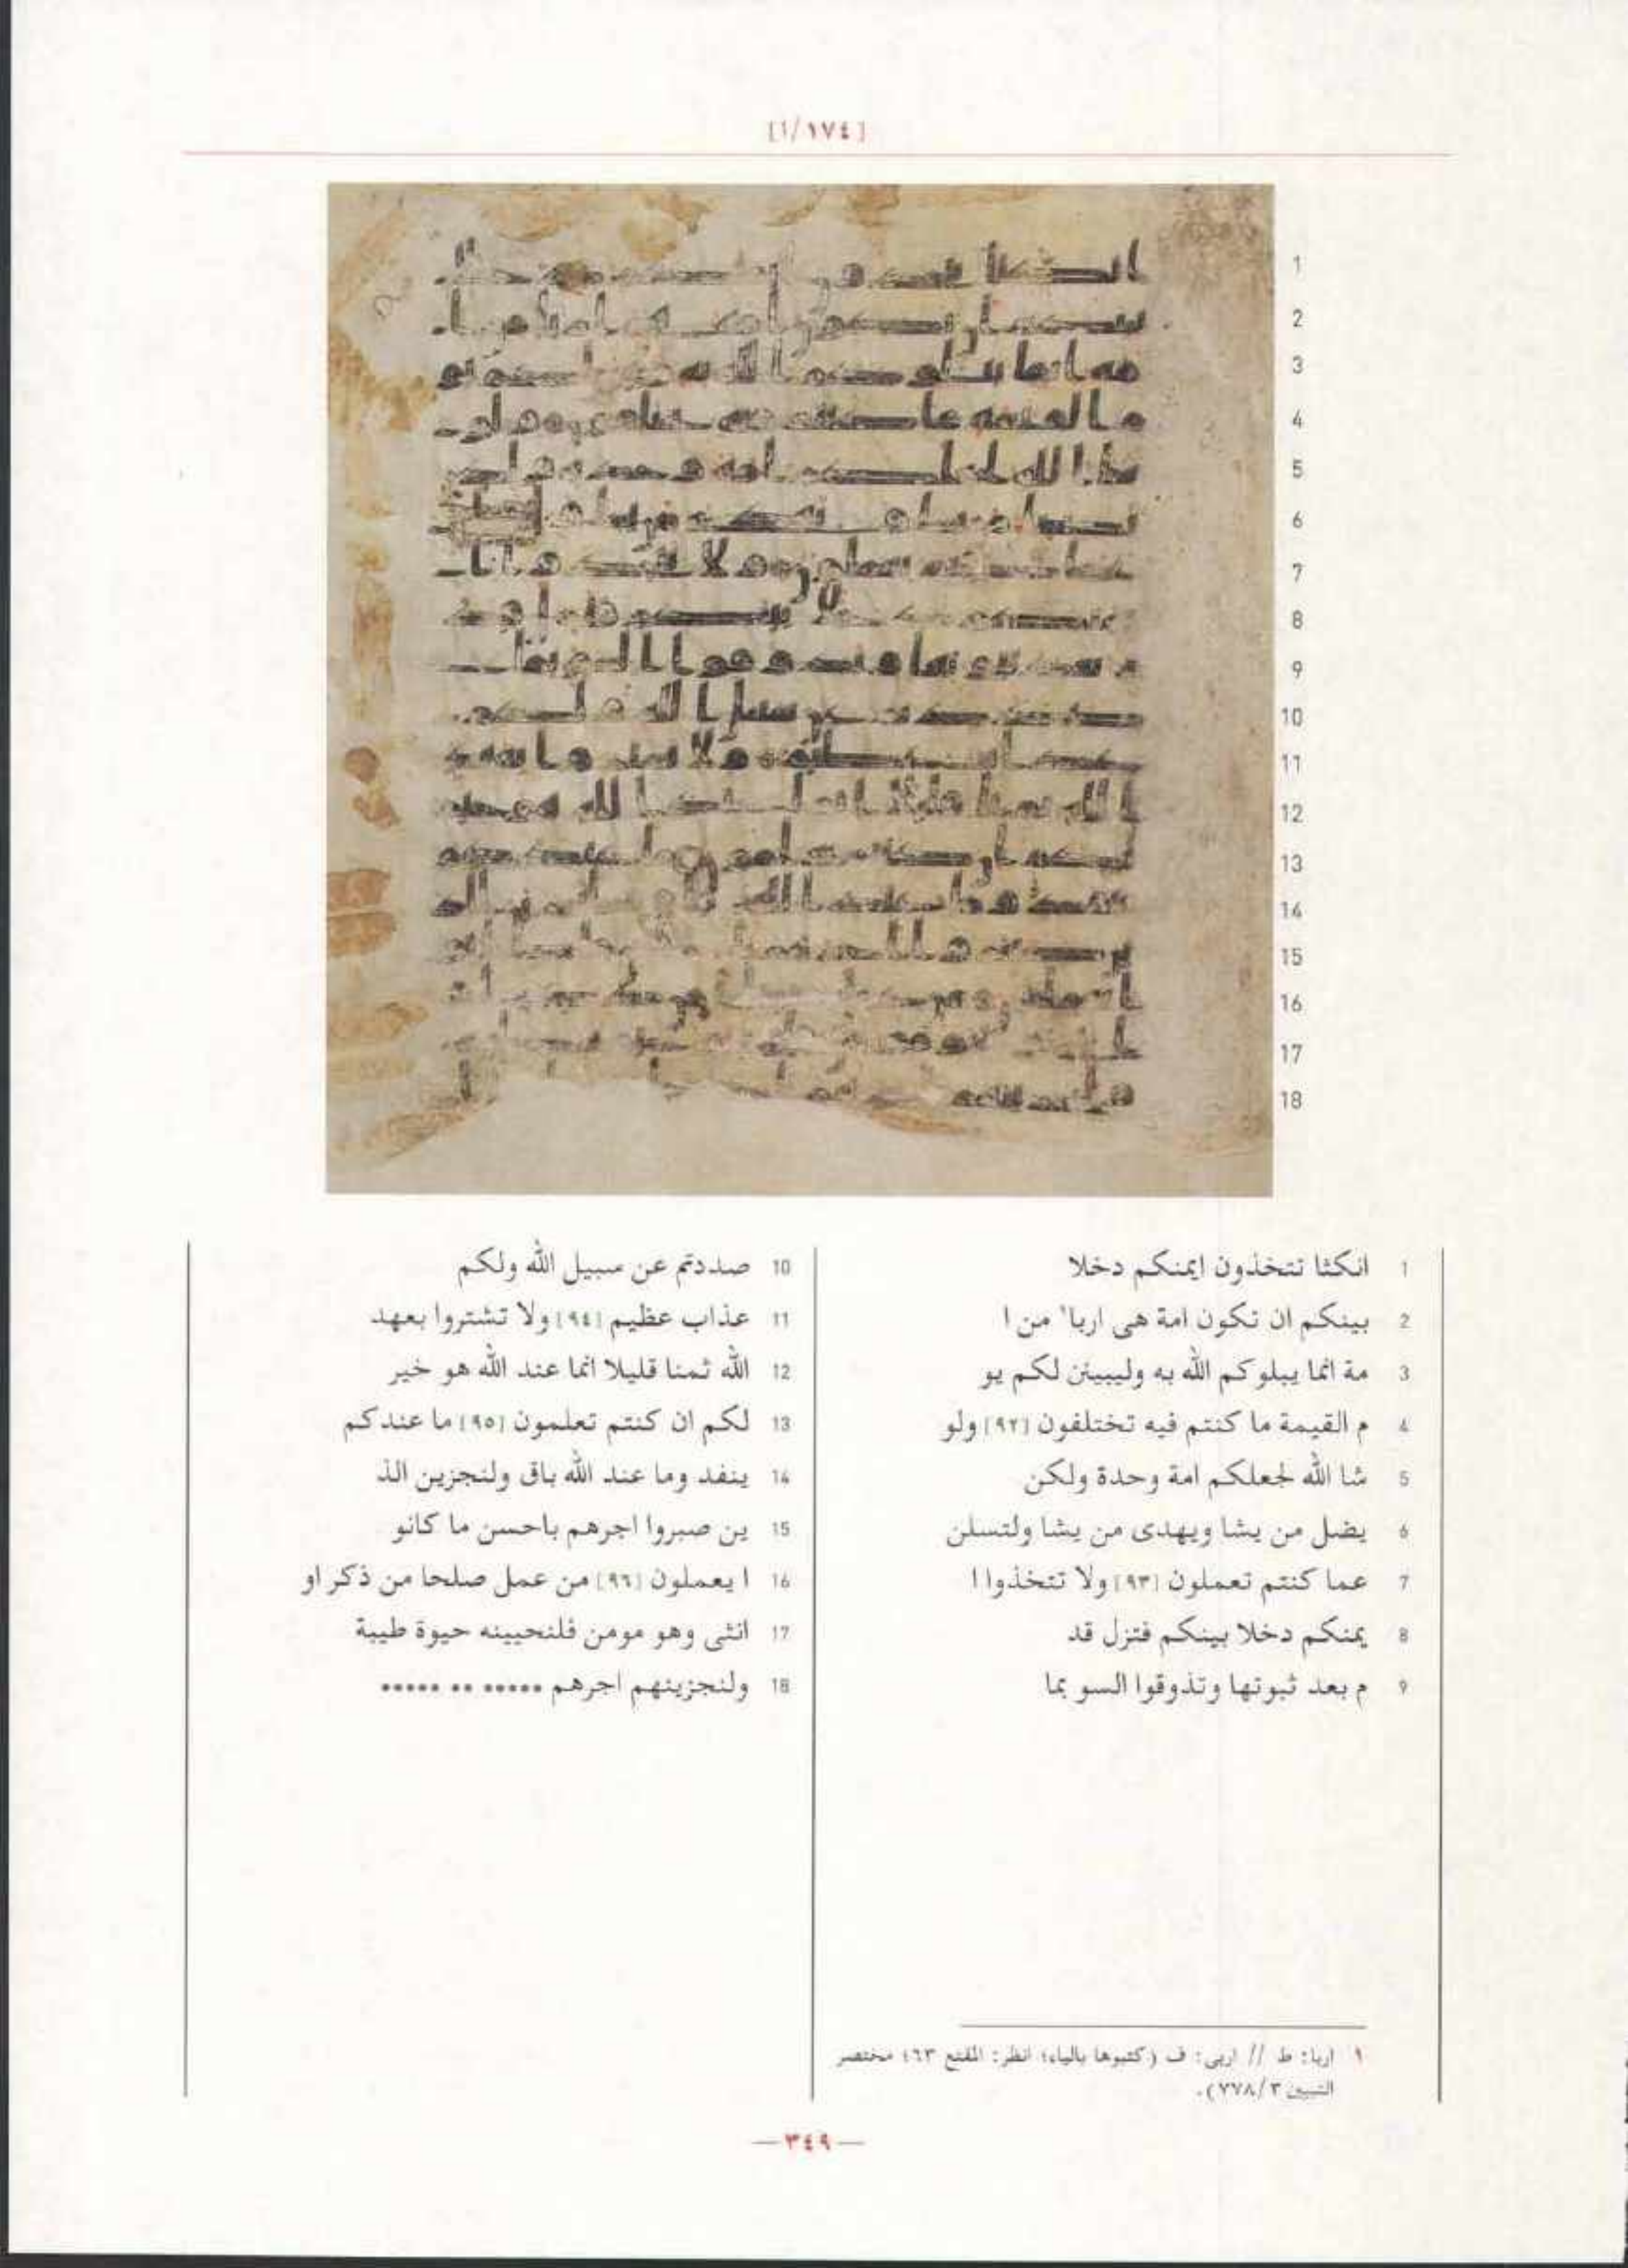 [١/١٧٤]
1
2
3
4
5
6
7
8
9
10
11
12
13
14
15
16
17
18
1 انكثا تتخذون ايمنكم دخلا
2 بينكم ان تكون امة هى اربا١ من ا
3 مة انما يبلوكم الله به وليبينن لكم يو
4 م القيمة ما كنتم فيه تختلفون [٩٢] ولو
5 شا الله لجعلكم امة وحدة ولكن
6 يضل من يشا ويهدى من يشا ولتسلن
7 عما كنتم تعملون [٩٣] ولا تتخذوا ا
8 يمنكم دخلا بينكم فتزل قد
9 م بعد ثبوتها وتذوقوا السو بما
10 صددتم عن سبيل الله ولكم
11 عذاب عظيم [٩٤] ولا تشتروا بعهد
12 الله ثمنا قليلا انما عند الله هو خير
13 لكم ان كنتم تعلمون [٩٥] ما عندكم
14 ينفد وما عند الله باق ولنجزين الذ
15 ين صبروا اجرهم باحسن ما كانو
16 ا يعملون [٩٦] من عمل صلحا من ذكر او
17 انثى وهو مومن فلنحيينه حيوة طيبة
18 ولنجزينهم اجرهم ••••• •• •••••
١ اربا: ط // اربى: ف (كتبوها بالياء؛ انظر: المقنع ٦٣؛ مختصر
التبيين ٣/٧٧٨).
—٣٤٩—